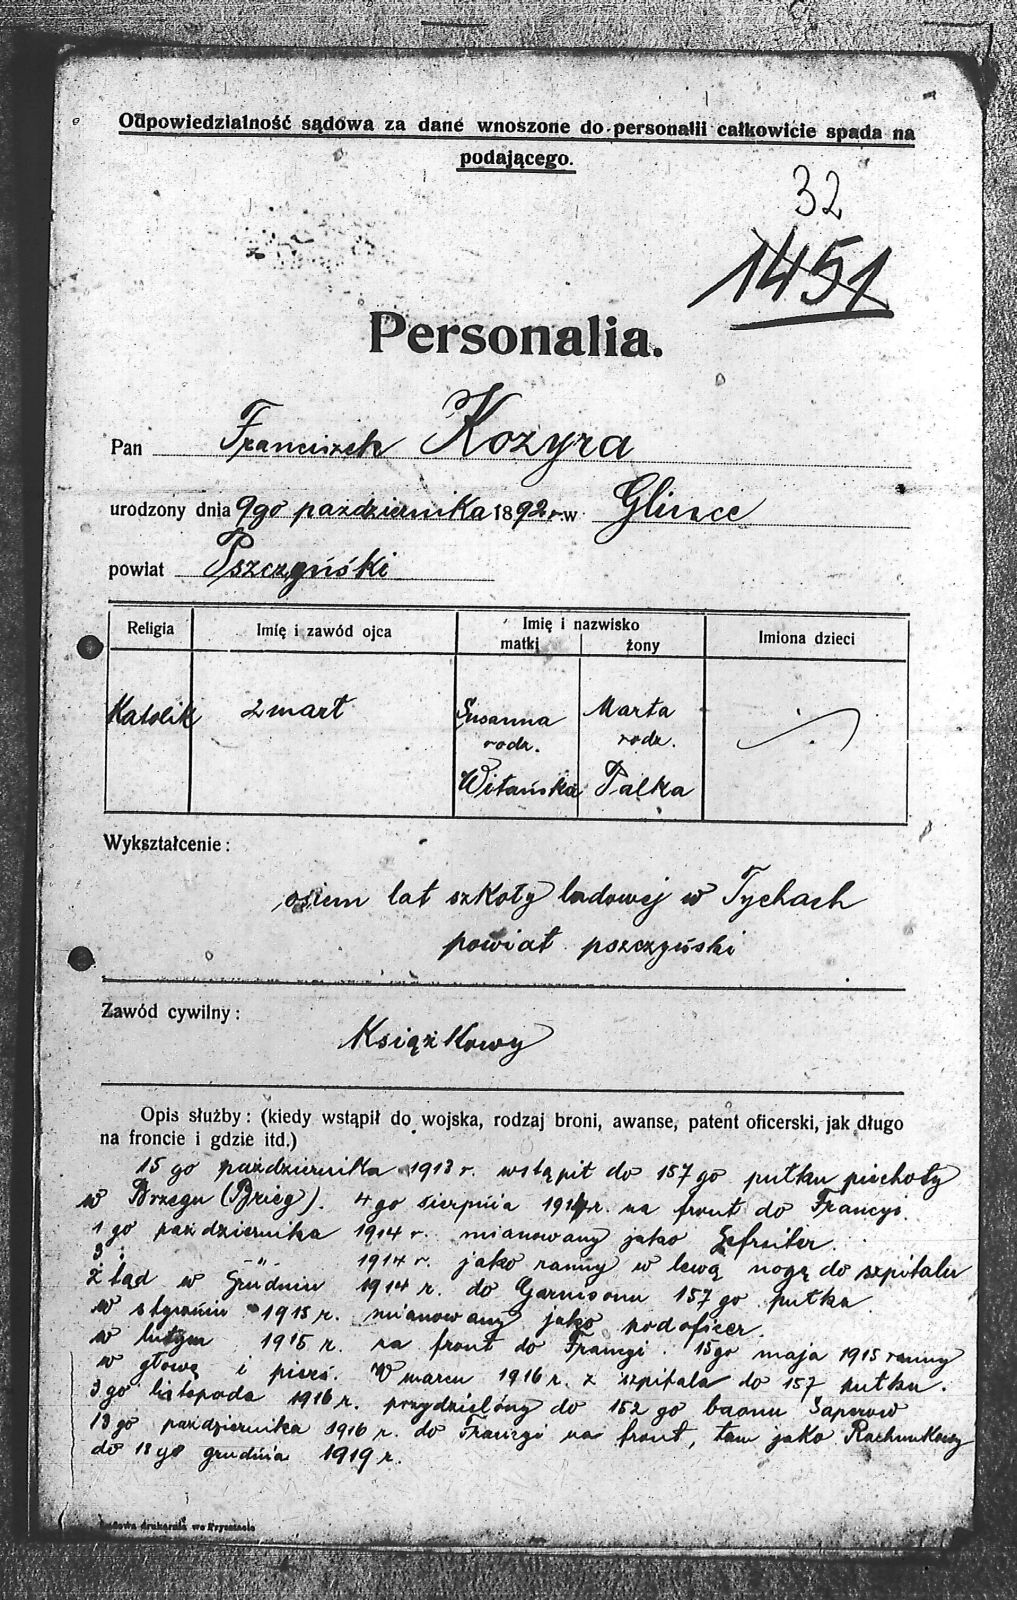 Odpowiedzialność sądowa za dane wnoszone do personalii całkowicie spada na
podającego.
32
1451
Personalia.
Pan Franciszek Kozyra
urodzony dnia 9go października 1892 r. w Glince
powiat Pszczyński
Religia Imię i zawód ojca Imię i nazwisko Imiona dzieci
matki żony
Katolik zmart Susanna Marta
rodz. rodz.
Witańska Palka
Wykształcenie:
osiem lat szkoły ludowej w Tychach
powiat pszczyński
Zawód cywilny:
Książkowy
Opis służby: (kiedy wstąpił do wojska, rodzaj broni, awanse, patent oficerski, jak długo
na froncie i gdzie itd.)
15 go października 1913 r. wstąpił do 157 go pułku piechoty
w Brzegu (Brieg). 4 go sierpnia 1914 r. na front do Francyi.
1 go października 1914 r. mianowany jako Gefreiter.
3. -"- 1914 r. jako ranny w lewą nogę do szpitalu
z tąd w Grudniu 1914 r. do Garnisonu 157 go pułku
w styczniu 1915 r. mianowany jako podoficer.
w lutym 1915 r. na front do Francyi. 15go maja 1915 ranny
w głowę i pierś. W marcu 1916 r. z szpitala do 157 pułku.
3 go listopada 1916 r. przydzielóny do 152 go baonu Saperow
18 go października 1916 r. do Francyi na front, tam jako Rachunkowy
do 18 go grudnia 1919 r.
drukarnia we Frysztacie